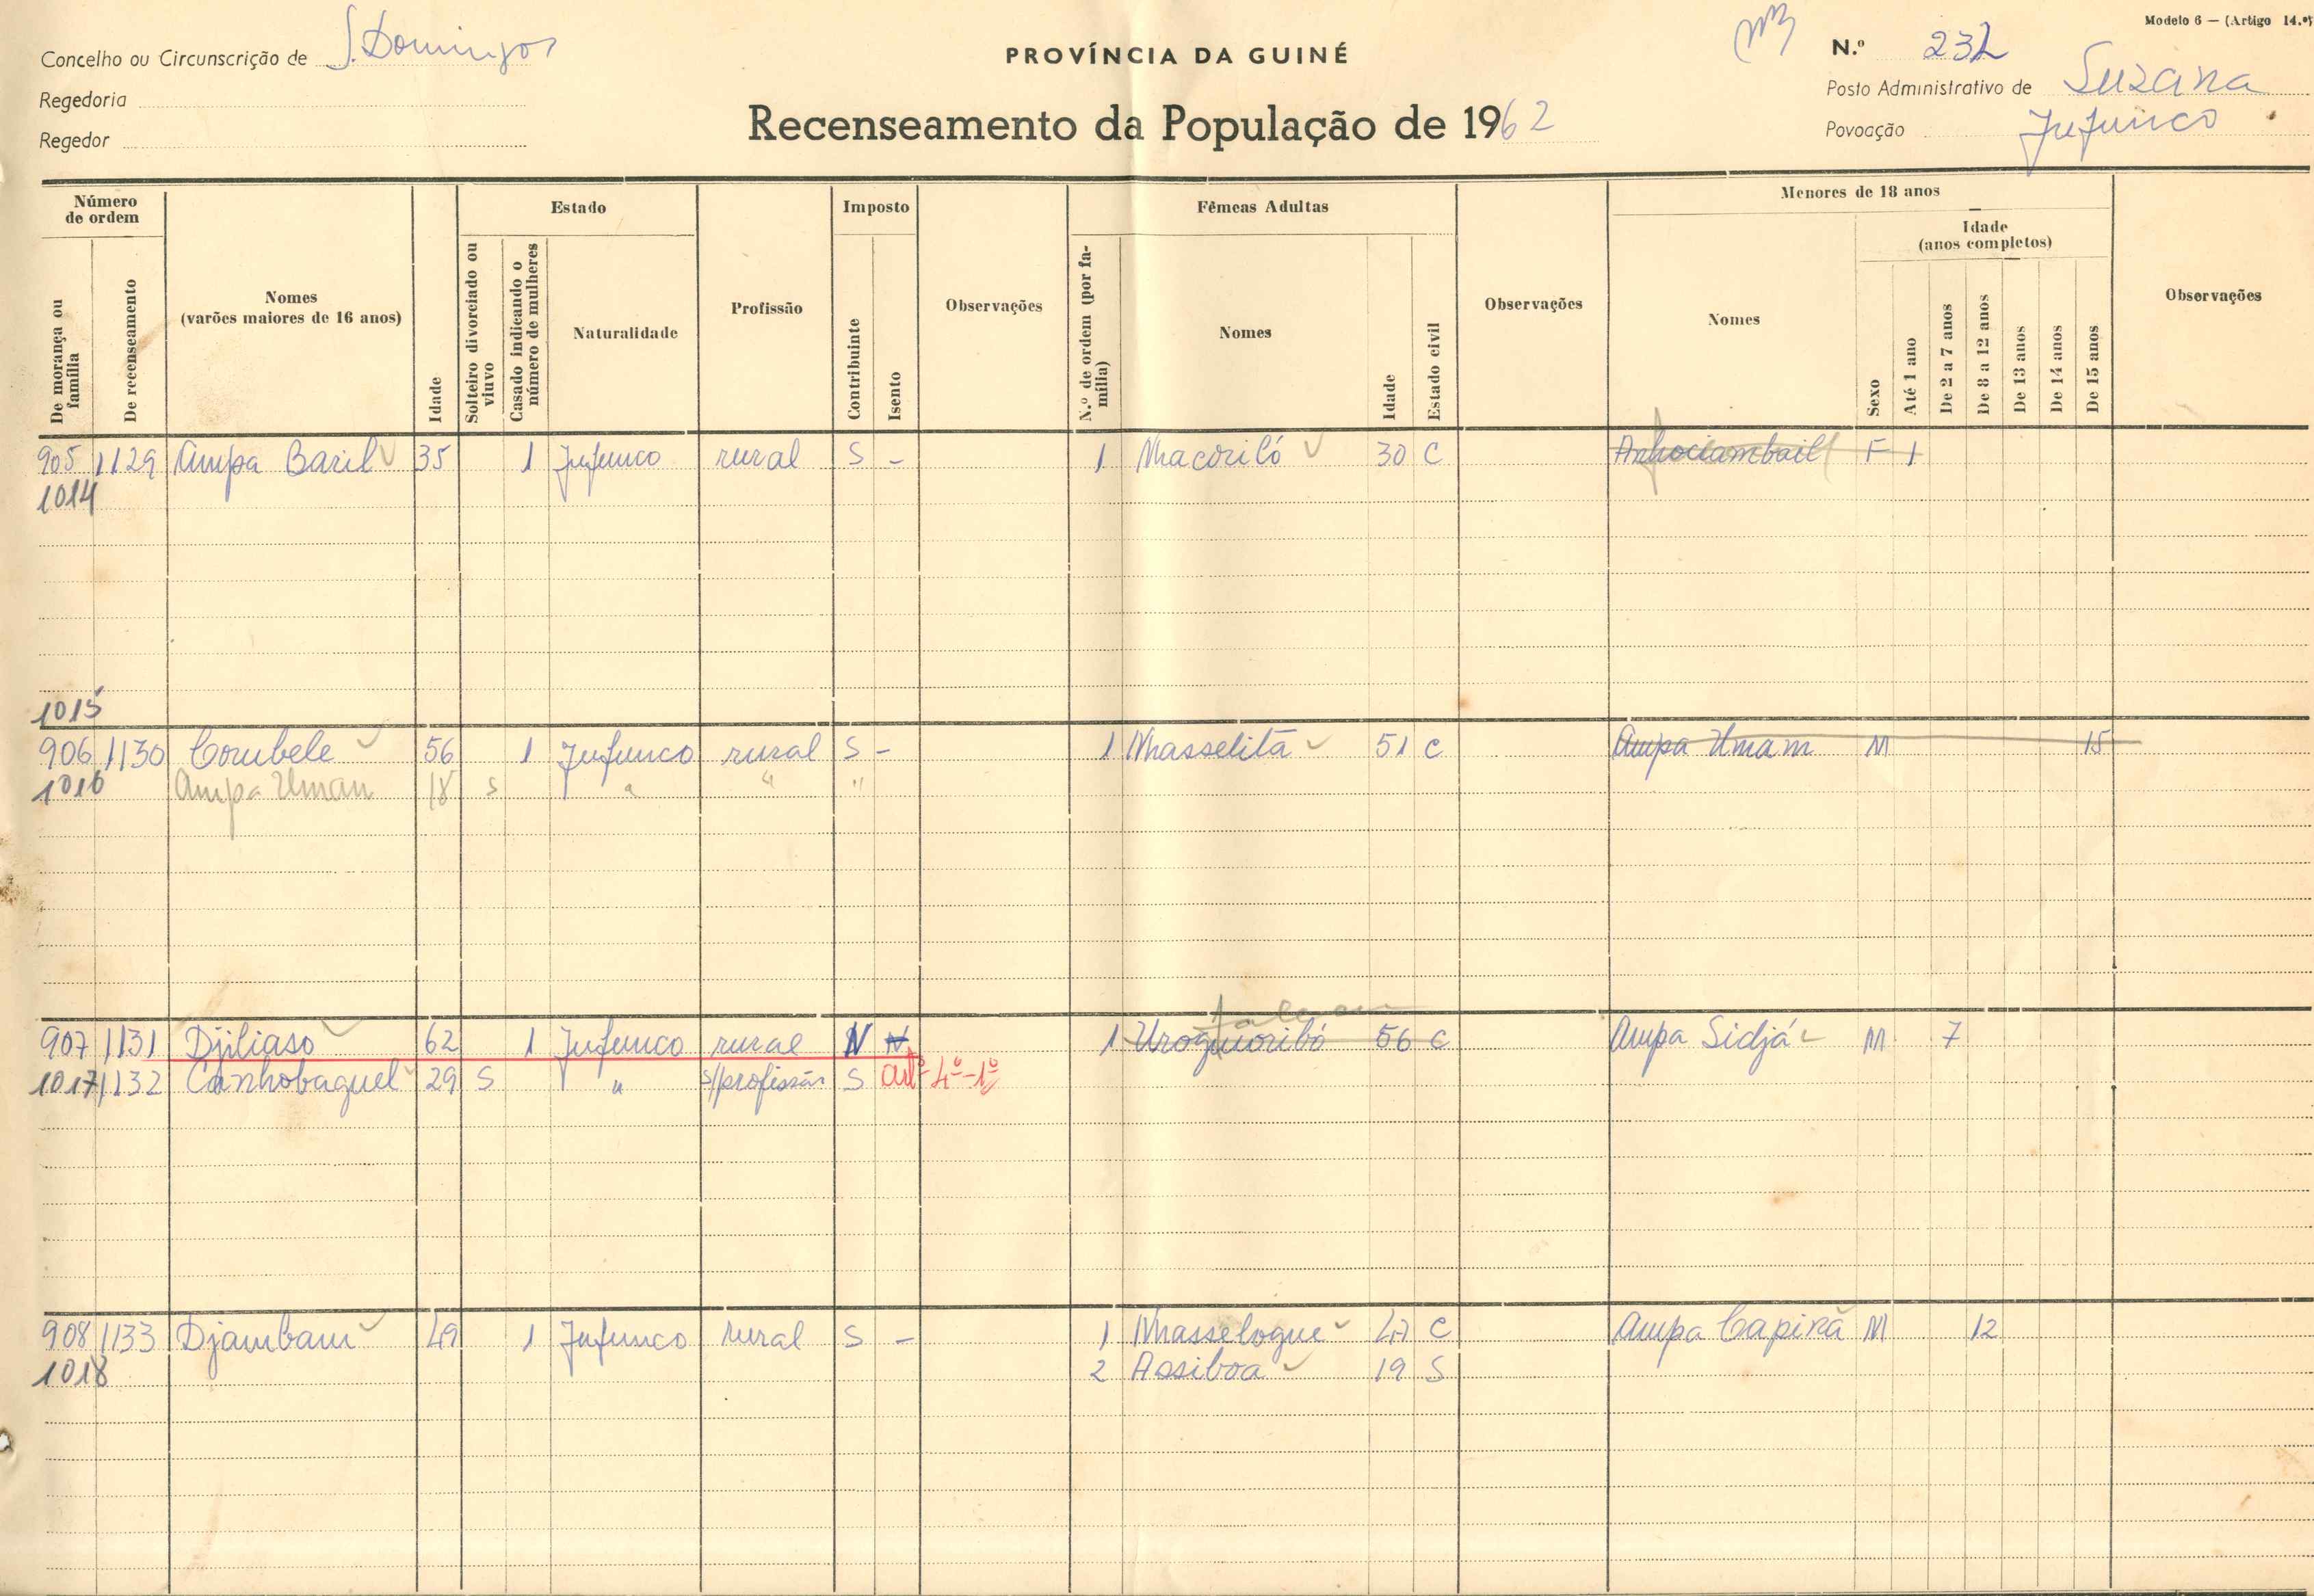 Modelo 6 — (Artigo 14.º)
Concelho ou Circunscrição de S. Domingos
PROVÍNCIA DA GUINÉ
N.º 232
Regedoria
Posto Administrativo de Suzana
Regedor
Recenseamento da População de 1962
Povoação Jufunco
Número de ordem
De morança ou família
De recenseamento
Nomes
(varões maiores de 16 anos)
Idade
Estado
Solteiro divorciado ou viuvo
Casado indicando o número de mulheres
Naturalidade
Profissão
Imposto
Contribuinte
Isento
Observações
Fêmeas Adultas
N.º de ordem (por família)
Nomes
Idade
Estado civil
Observações
Menores de 18 anos
Nomes
Sexo
Idade
(anos completos)
Até 1 ano
De 2 a 7 anos
De 8 a 12 anos
De 13 anos
De 14 anos
De 15 anos
Observações
905 1129 Ampa Baril 35 1 Jufunco rural S - 1 Nhacoriló 30 C F 1
1014
1015
906 1130 Corubele 56 1 Jufunco rural S - 1 Nhasselitá 51 C Ampa Umam M 15
1016 Ampa Uman 18 S " " "
907 1131 Djiliaso 62 1 Jufunco rural N N 1 Uroquoribó 56 C Ampa Sidjá M 7
1017 1132 Canhobaquel 29 S " s/profissão S artº 4º-1º
908 1133 Djambam 49 1 Jufunco rural S - 1 Nhasselogue C Ampa Capirã M 12
1018 2 Assiboa 19 S